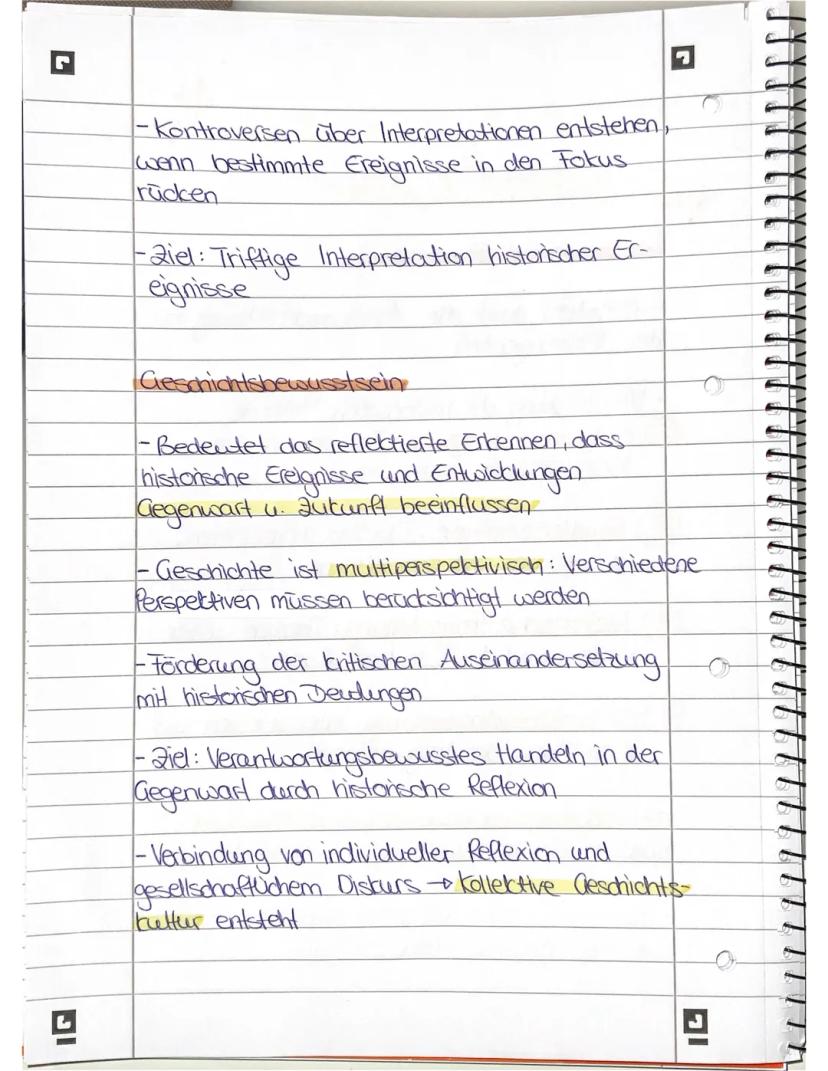 - Kontroversen über Interpretationen entstehen,
wenn bestimmte Ereignisse in den Fokus
rücken
- Ziel: Triftige Interpretation historischer Er-
eignisse
Geschichtsbewusstsein
- Bedeutet das reflektierte Erkennen, dass
historische Ereignisse und Entwicklungen
Gegenwart u. Zukunft beeinflussen
- Geschichte ist multiperspektivisch: Verschiedene
Perspektiven müssen berücksichtigt werden
- Förderung der kritischen Auseinandersetzung
mit historischen Deutungen
- Ziel: Verantwortungsbewusstes Handeln in der
Gegenwart durch historische Reflexion
- Verbindung von individueller Reflexion und
gesellschaftlichem Diskurs → kollektive Geschichts-
kultur entsteht